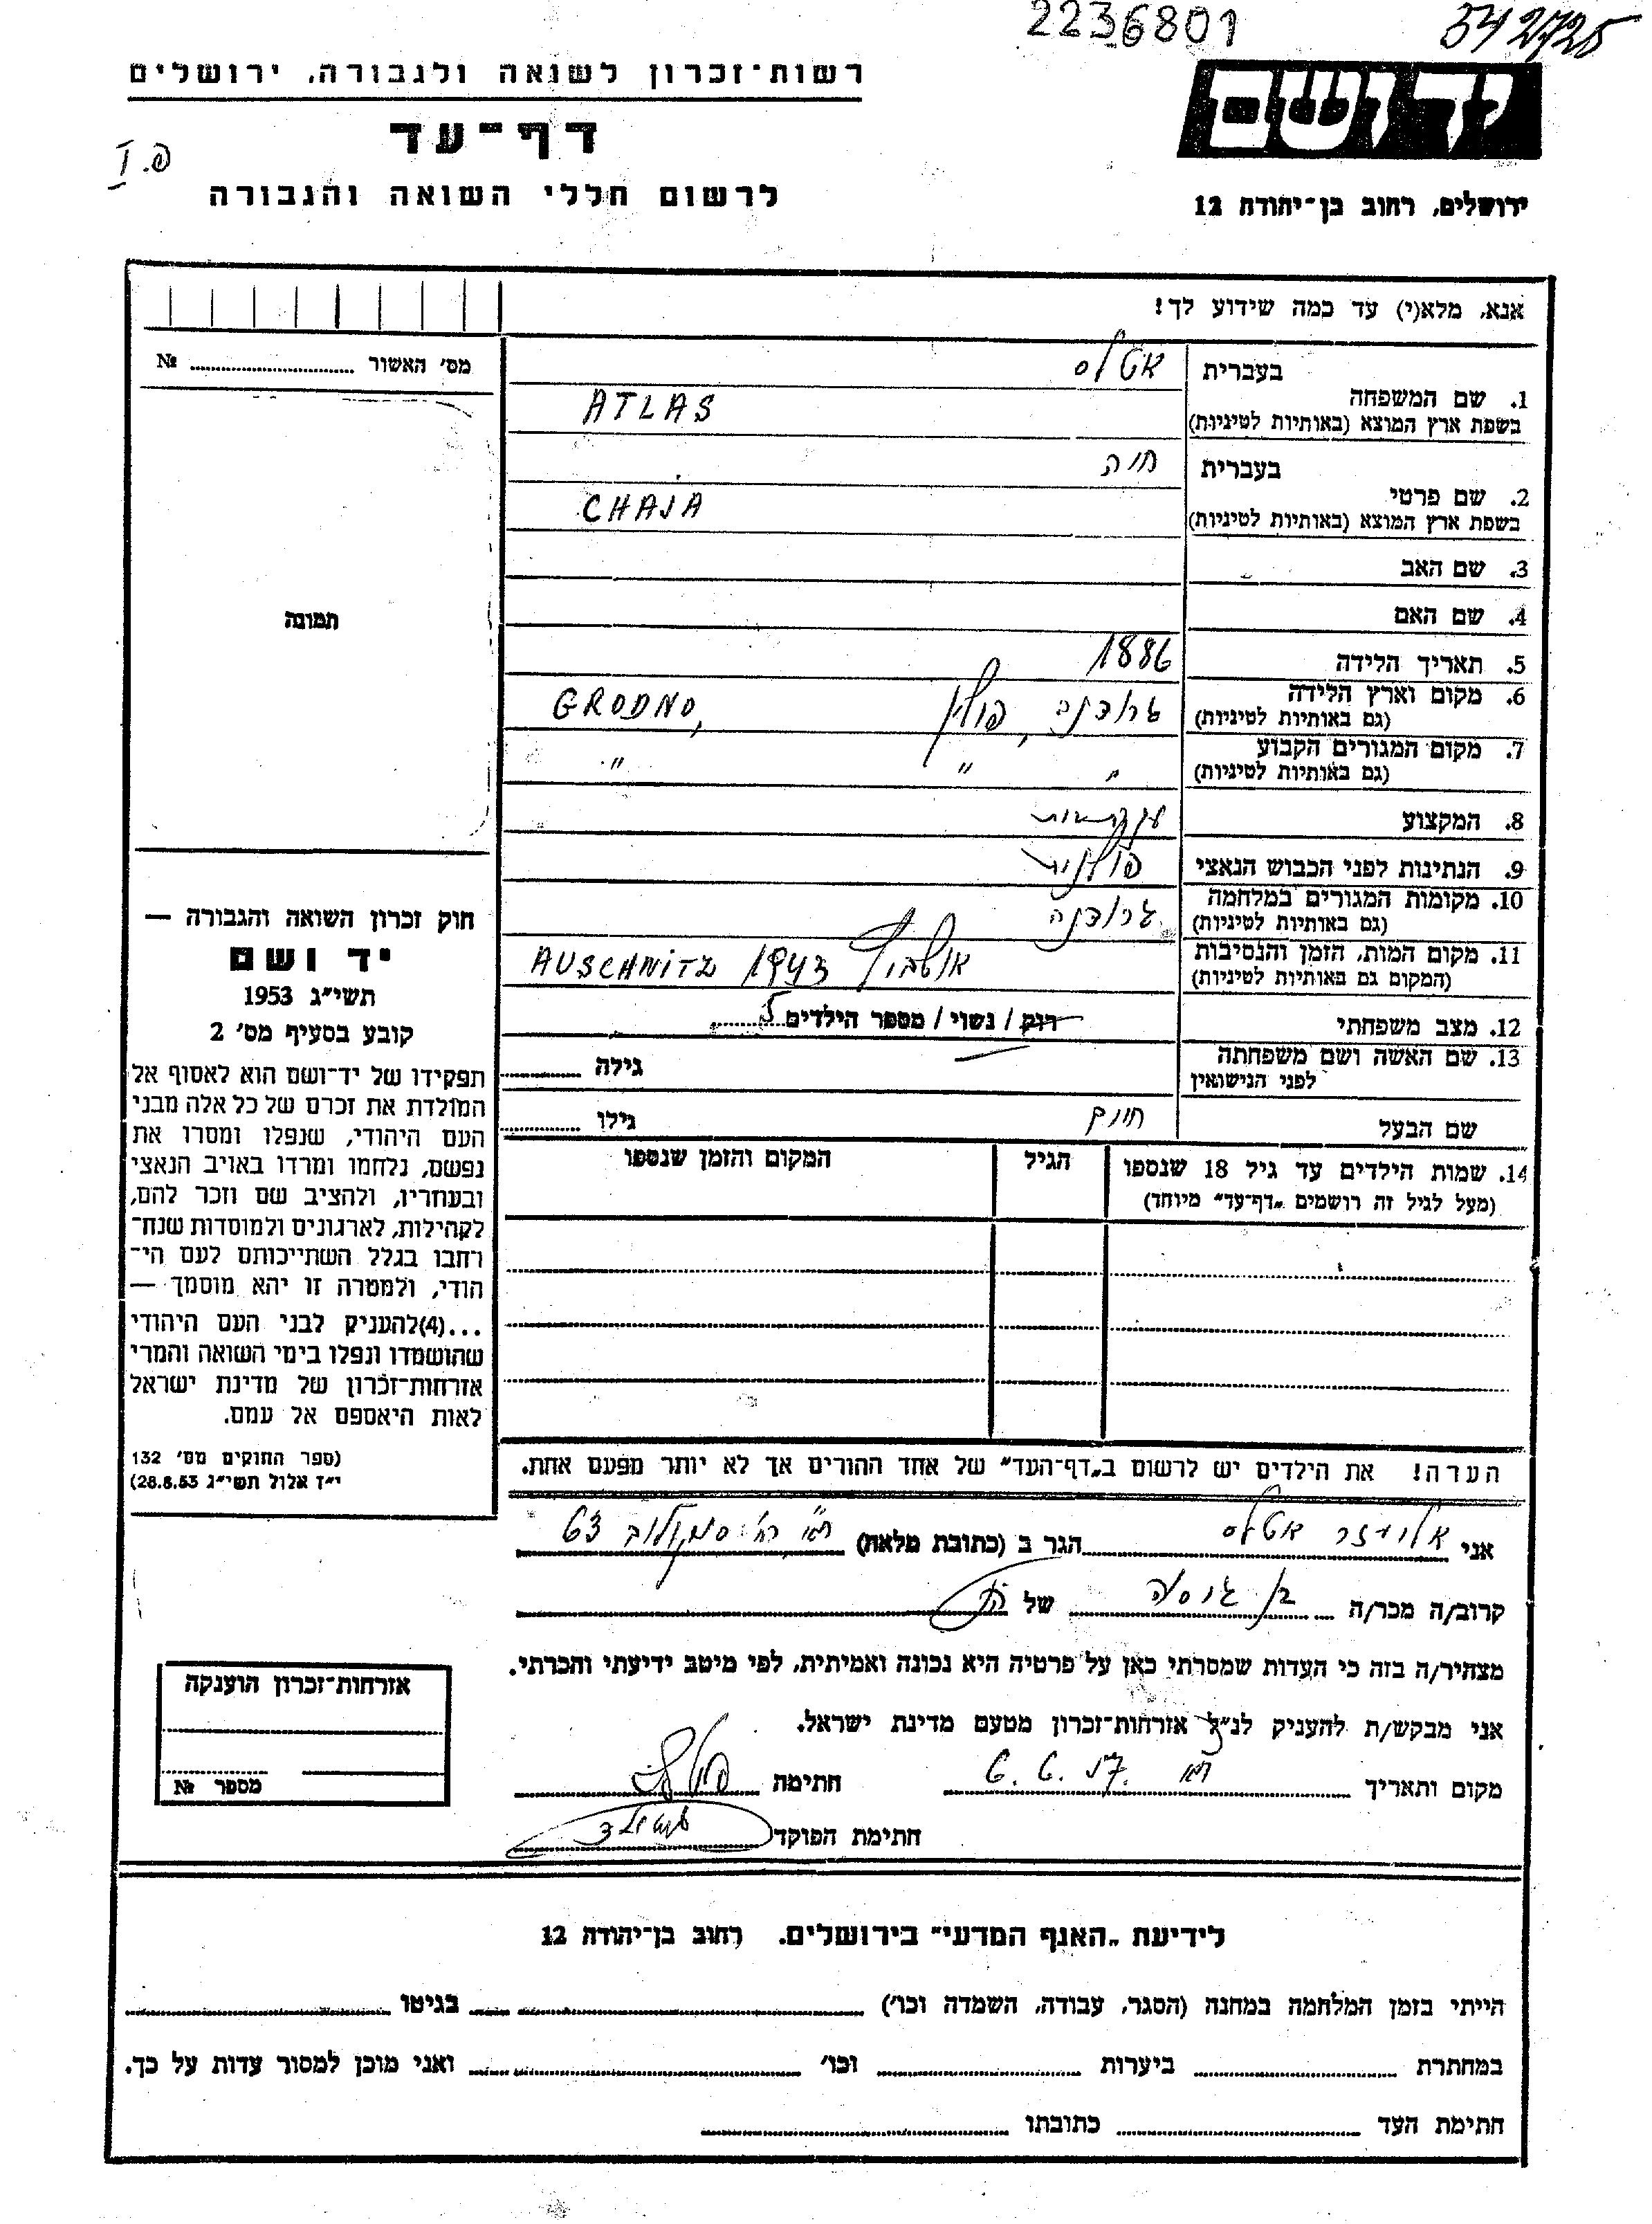 2236801
342725
רשות־זכרון לשואה ולגבורה, ירושלים
יד ושם
דף־עד
פ. I
לרשום חללי השואה והגבורה
ירושלים, רחוב בן־יהודה 12
אנא, מלא(י) עד כמה שידוע לך!
מס' האשור № ........
1. שם המשפחה בעברית אטלס
בשפת ארץ המוצא (באותיות לטיניות) ATLAS
2. שם פרטי בעברית חיה
בשפת ארץ המוצא (באותיות לטיניות) CHAJA
3. שם האב
4. שם האם
תמונה
5. תאריך הלידה 1886
6. מקום וארץ הלידה (גם באותיות לטיניות) גרודנה, פולין GRODNO,
7. מקום המגורים הקבוע (גם באותיות לטיניות) " " "
8. המקצוע עקרת בית
9. הנתינות לפני הכבוש הנאצי פולנית
10. מקומות המגורים במלחמה (גם באותיות לטיניות) גרודנה
11. מקום המות, הזמן והנסיבות (המקום גם באותיות לטיניות) אושביץ 1943 AUSCHNITZ
12. מצב משפחתי רוק / נשוי / מספר הילדים 5
13. שם האשה ושם משפחתה לפני הנישואין — גילה ........
שם הבעל חיים גילו ........
14. שמות הילדים עד גיל 18 שנספו הגיל המקום והזמן שנספו
(מעל לגיל זה רושמים "דף־עד" מיוחד)
הערה! את הילדים יש לרשום ב"דף־העד" של אחד ההורים אך לא יותר מפעם אחת.
חוק זכרון השואה והגבורה —
יד ושם
תשי"ג 1953
קובע בסעיף מס' 2
תפקידו של יד־ושם הוא לאסוף אל
המולדת את זכרם של כל אלה מבני
העם היהודי, שנפלו ומסרו את
נפשם, נלחמו ומרדו באויב הנאצי
ובעוזריו, ולהציב שם וזכר להם,
לקהילות, לארגונים ולמוסדות שנח־
רחבו בגלל השתייכותם לעם הי־
הודי, ולמטרה זו יהא מוסמך —
...(4)להעניק לבני העם היהודי
שהושמדו ונפלו בימי השואה והמרי
אזרחות־זכרון של מדינת ישראל
לאות היאספם אל עמם.
(ספר החוקים מס' 132
י"ז אלול תשי"ג 28.8.53)
אני אליעזר אטלס הגר ב (כתובת מלאה) ת"א, רח' סוקולוב 63
קרוב/ה מכר/ה בן גיסה של הנ"ל
מצהיר/ה בזה כי העדות שמסרתי כאן על פרטיה היא נכונה ואמיתית, לפי מיטב ידיעתי והכרתי.
אני מבקש/ת להעניק לנ"ל אזרחות־זכרון מטעם מדינת ישראל.
מקום ותאריך ת"א 6.6.57 חתימה
חתימת הפוקד
אזרחות־זכרון הוענקה
מספר №
לידיעת "האנף המדעי" בירושלים. רחוב בן־יהודה 12
הייתי בזמן המלחמה במחנה (הסגר, עבודה, השמדה וכו') ........ בגיטו ........
במחתרת ........ ביערות ........ וכו' ........ ואני מוכן למסור עדות על כך.
חתימת העד ........ כתובתו ........